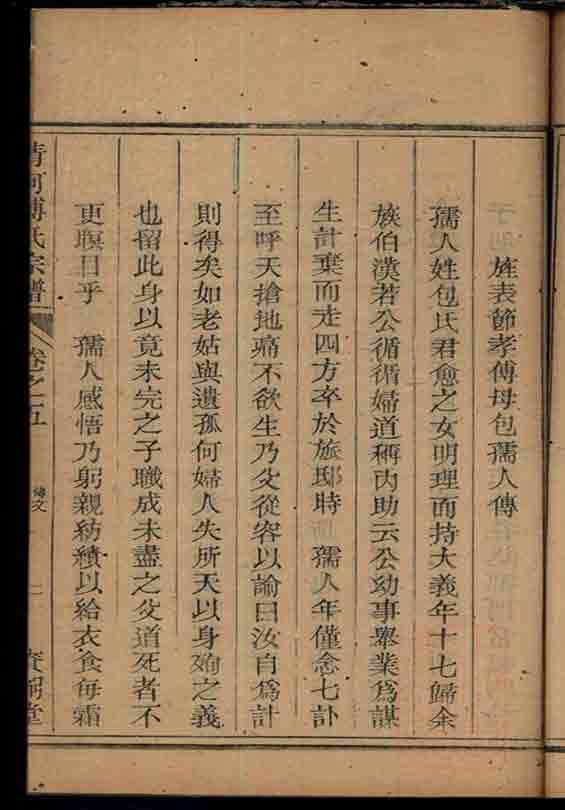 旌表節孝傅母包孺人傳
孺人姓包氏君愈之女明理而持大義年十七歸余
族伯漢若公循循婦道稱內助云公幼事舉業為謀
生計棄而走四方卒於旅邸時　孺人年僅念七訃
至呼天搶地痛不欲生乃父從容以諭曰汝自為計
則得矣如老姑與遺孤何婦人失所天以身殉之義
也留此身以竟未完之子職成未盡之父道死者不
更瞑目乎　孺人感悟乃躬親紡績以給衣食每霜
清河傅氏宗譜
卷之五
傳文